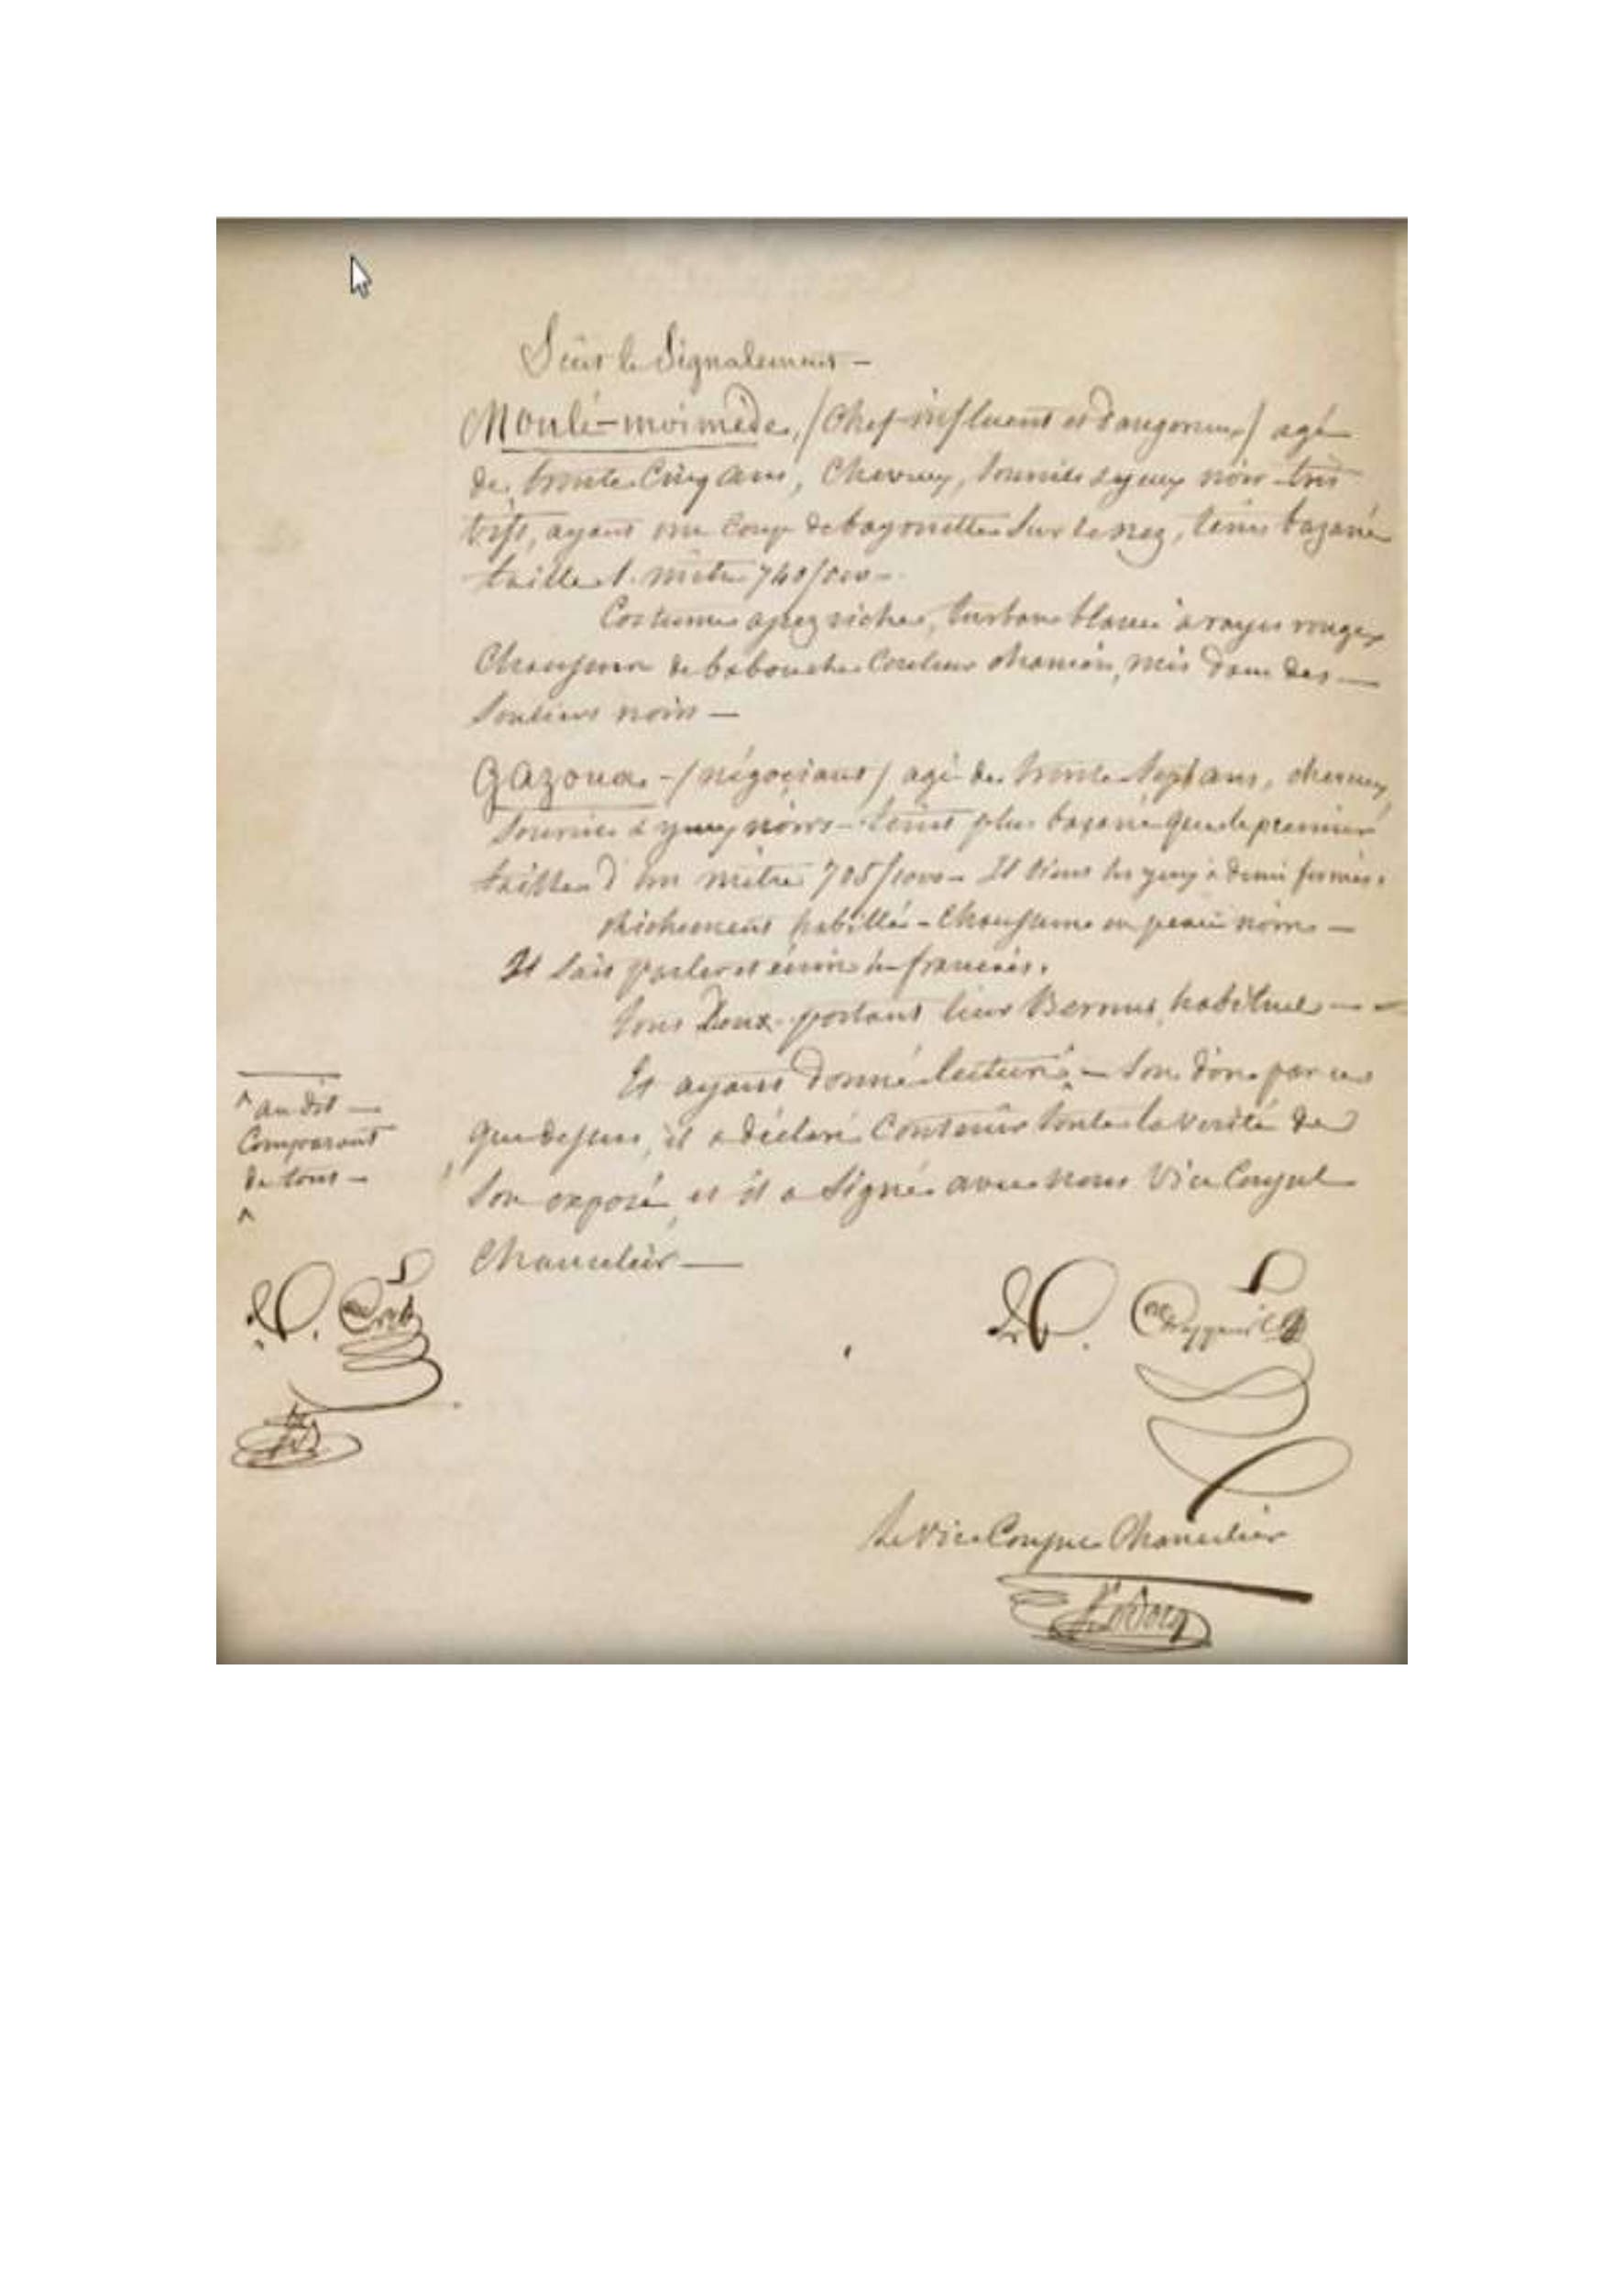 Suit le Signalement —
Moulé-moimède, / Chef influent et dangereux / agé
de trente Cinq ans, Cheveux, Sourcils & yeux noir très
vifs, ayant un Coup de bayonette Sur le nez, teint bazané
taille 1. mètre 740/000 —
Costume assez riche, turban blanc à rayes rouges
Chaussure de babouches Couleur chamois, mis dans des —
Souliers noirs —
Gazoua - / négociant / agé de trente Sept ans, cheveux,
Sourcils & yeux noirs - teint plus bazané que le premier
taille d'un mètre 705/1000 - Il tient les yeux à demi fermés.
Richement habillé - Chaussure en peau noire —
Il Sait parler et écrire le francais.
Tous Deux portant leur Bernus habituel —
Et ayant donné lecture
^ au dit —
Comparant
de tout —
^
que dessus, il a déclaré Contenir toute la verité de
Son exposé, et il a Signé avec nous Vice Consul
Chancelier —
Le Vice Consul Chancelier